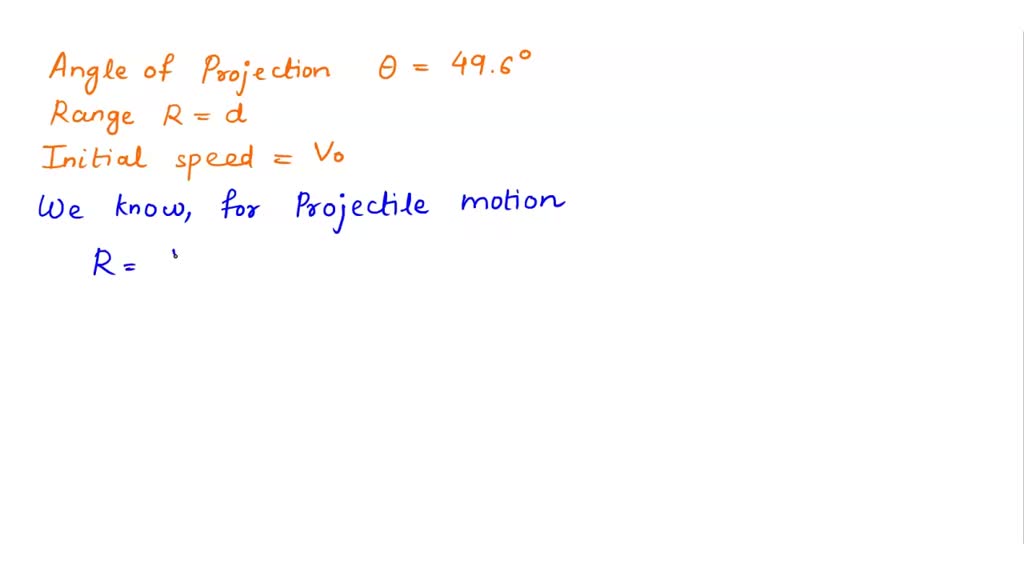 Angle of Projection θ = 49.6°
Range R = d
Initial speed = V₀
We know, for Projectile motion
R =